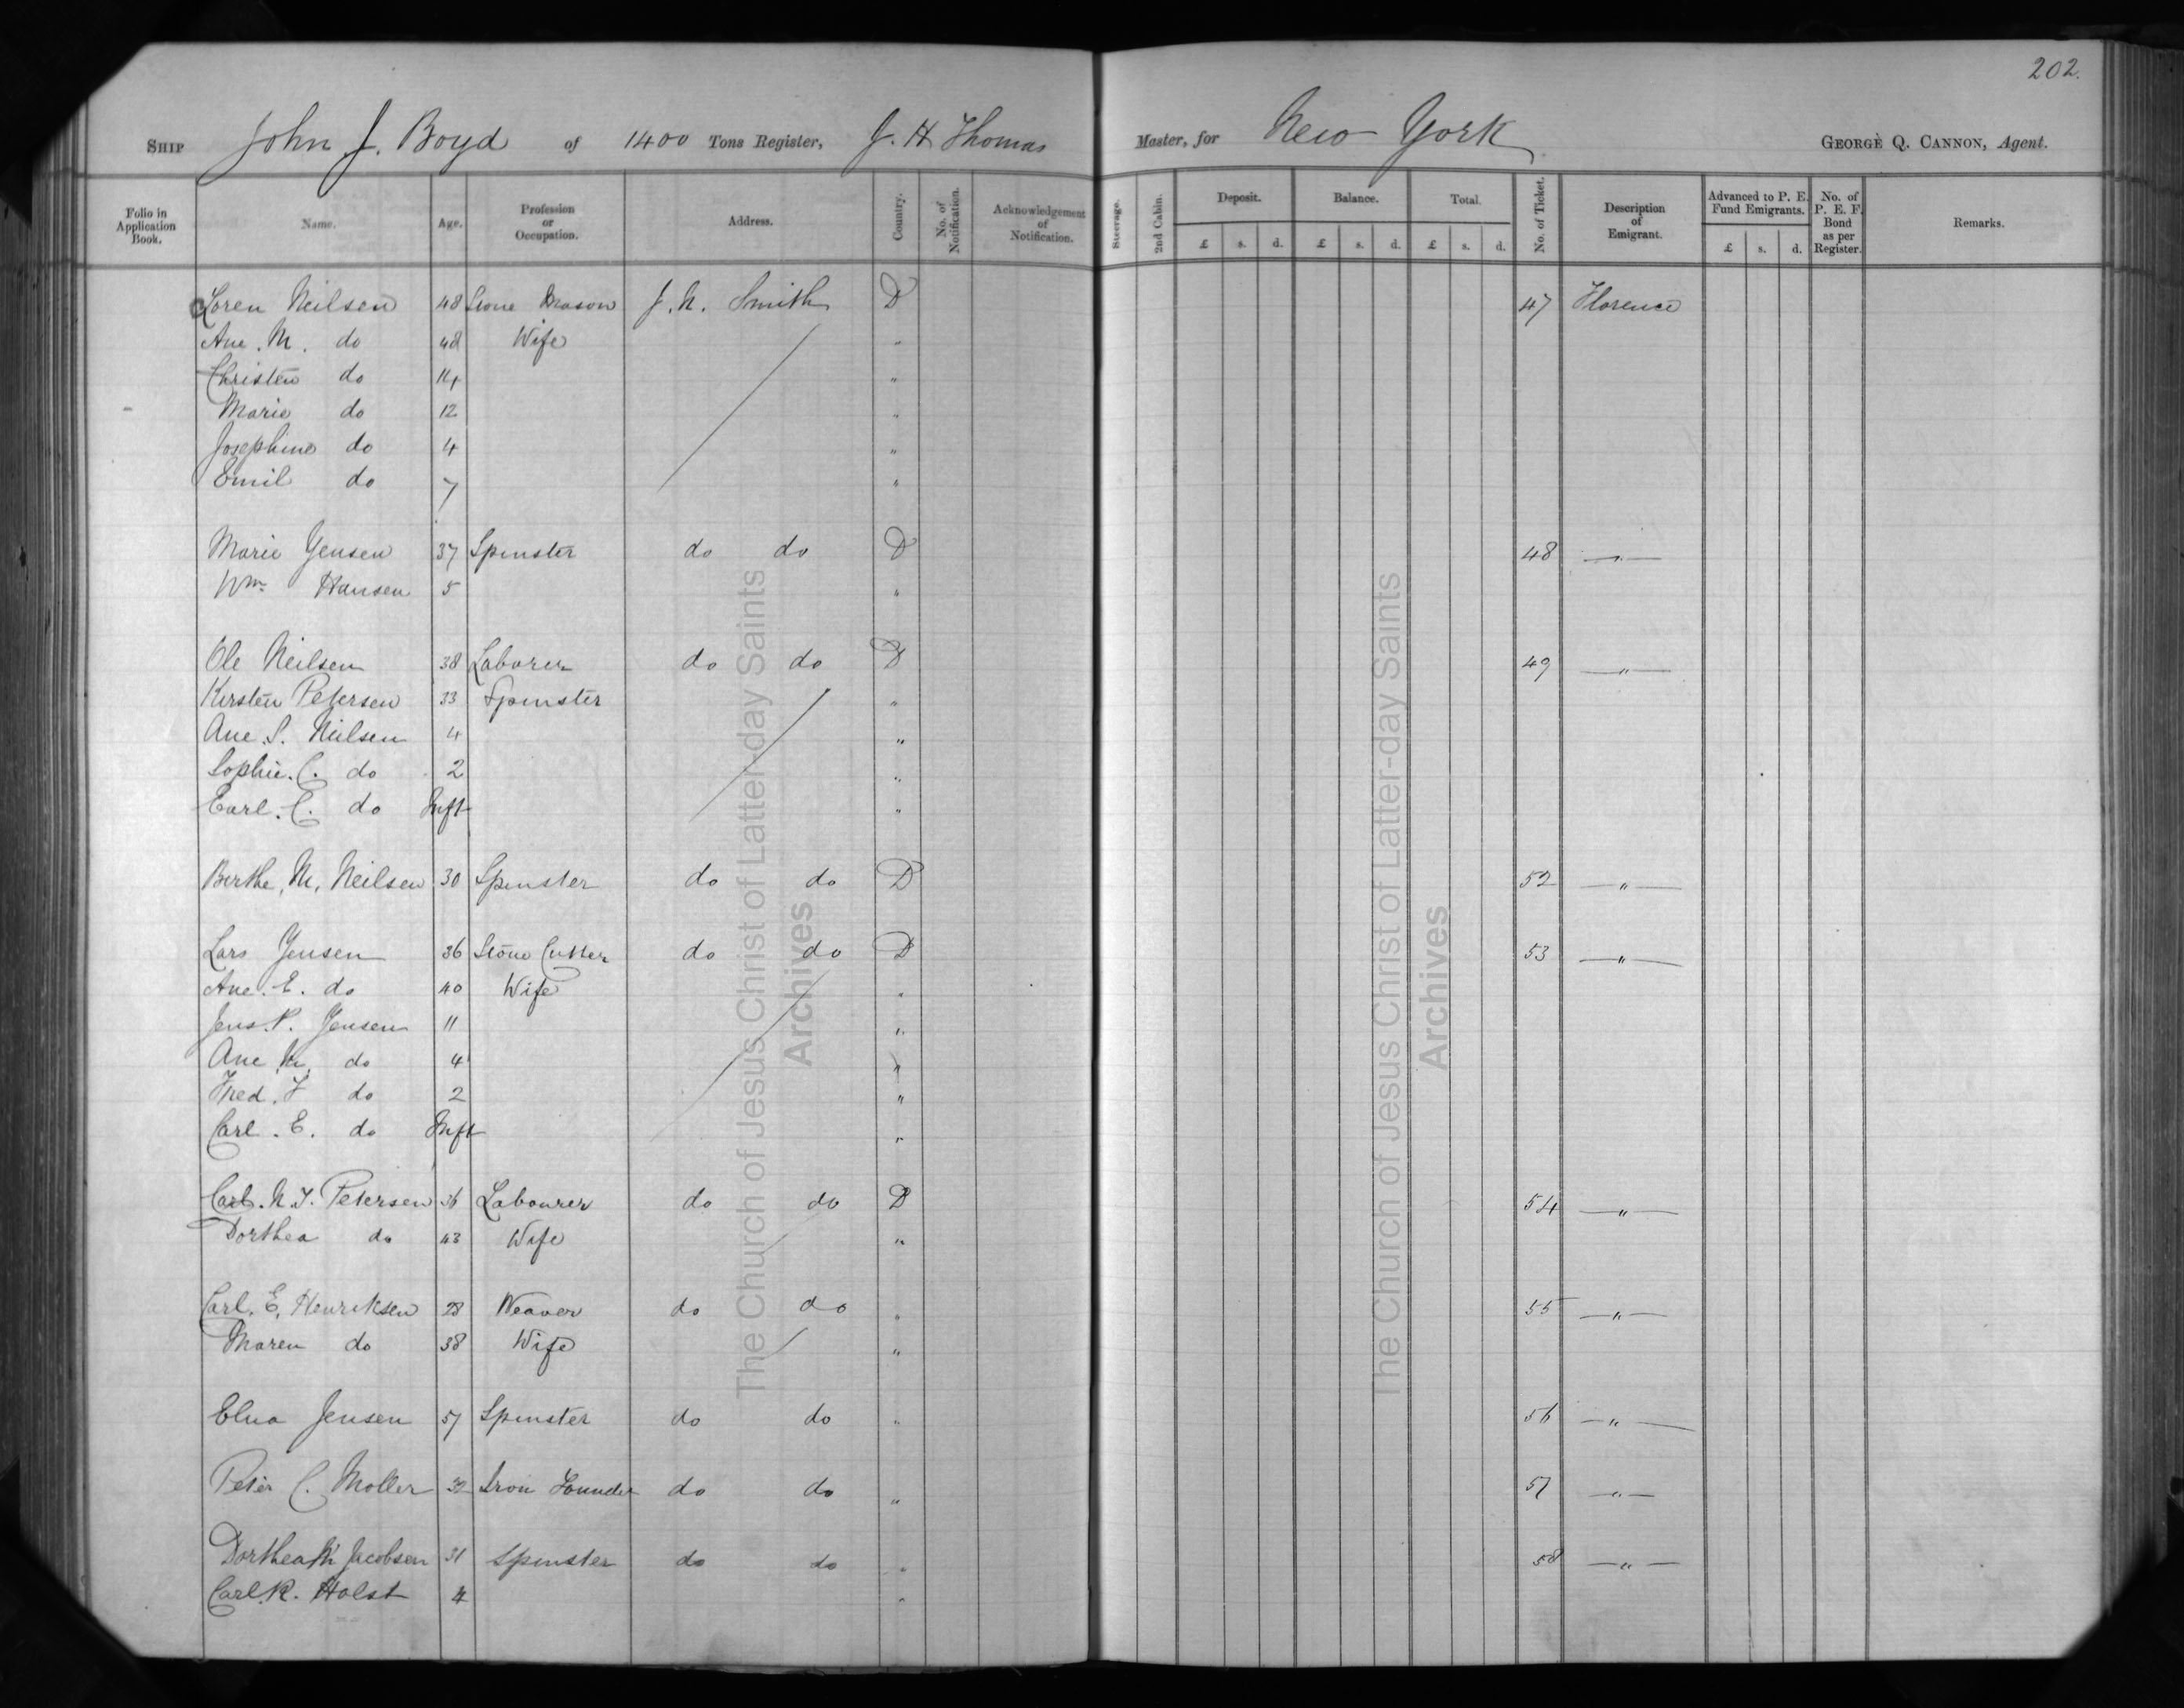 202.
SHIP John J. Boyd of 1400 Tons Register, J. H Thomas Master, for New York GEORGE Q. CANNON, Agent.
Folio in Application Book. Name. Age. Profession or Occupation. Address. Country. No. of Notification. Acknowledgement of Notification. Steerage. 2nd Cabin. Deposit. £ s. d. Balance. £ s. d. Total. £ s. d. No. of Ticket. Description of Emigrant. Advanced to P. E. Fund Emigrants. £ s. d. No. of P. E. F. Bond as per Register. Remarks.
Soren Neilsen 48 Stone Mason J. N. Smith D 47 Florence
Ane. M. do 48 Wife "
Christen do 14 "
Marie do 12 "
Josephine do 4 "
Emil do 7 "
Marie Jensen 37 Spinster do do D 48 — " —
Wm. Hansen 5 "
Ole Neilsen 38 Laborer do do D 49 — " —
Kirsten Petersen 33 Spinster "
Ane S. Neilsen 4 "
Sophie. C. do 2 "
Carl. C. do Inft "
Berthe, M. Neilsen 30 Spinster do do D 52 — " —
Lars Jensen 36 Stone Cutter do do D 53 — " —
Ane. E. do 40 Wife "
Jens. P. Jensen 11 "
Ane M. do 4 "
Fred. F do 2 "
Carl. E. do Inft "
Carl. N. J. Petersen 36 Labourer do do D 54 — " —
Dorthea do 43 Wife "
Carl. E. Henriksen 28 Weaver do do " 55 — " —
Maren do 38 Wife "
Elna Jensen 57 Spinster do do " 56 — " —
Peter C. Moller 32 Iron Founder do do " 57 — " —
Dorthea M Jacobsen 31 Spinster do do " 58 — " —
Carl. R. Holst 4 "
The Church of Jesus Christ of Latter-day Saints
Archives
The Church of Jesus Christ of Latter-day Saints
Archives